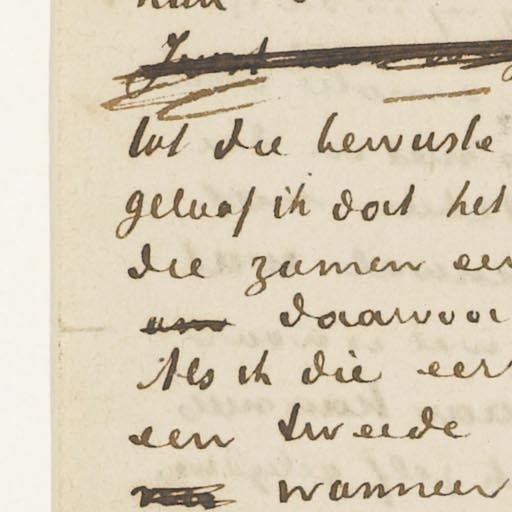 tot die bewuste
geloof ik dat het
die zamen een
daarvoor
Als ik die eer
een tweede
wanneer